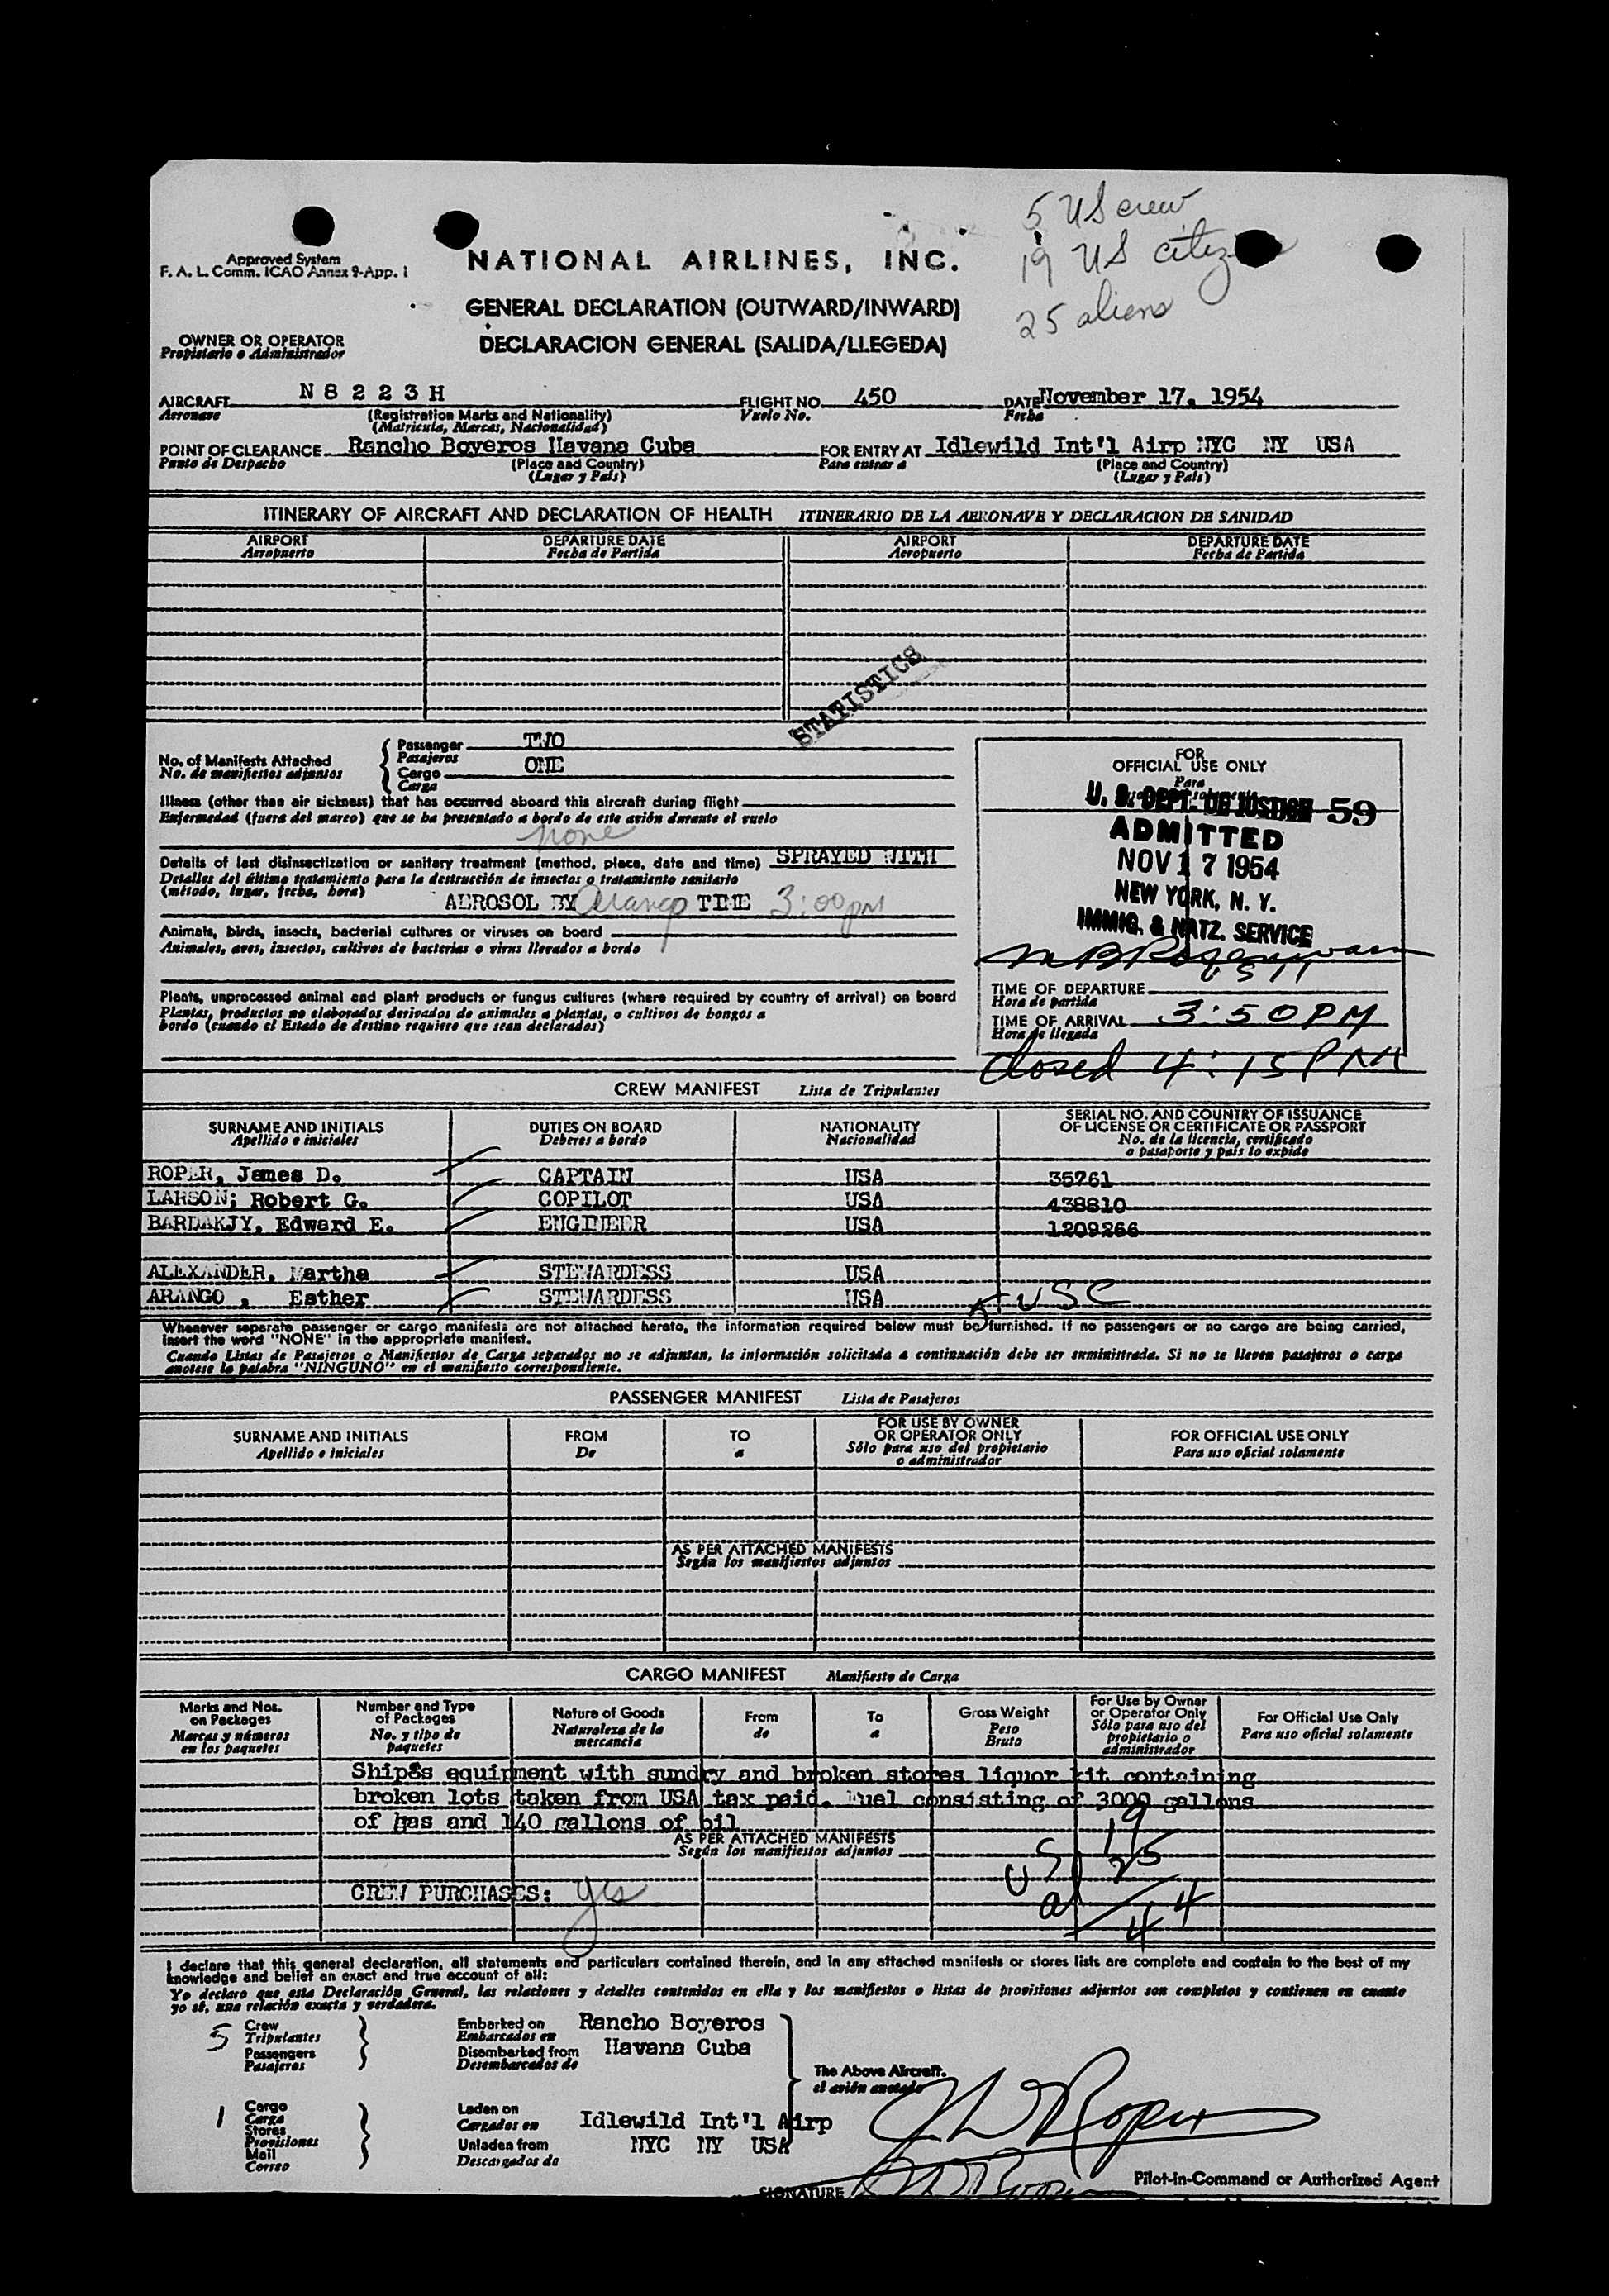 5 US crew
19 US citiz
25 aliens
Approved System
F. A. L. Comm. ICAO Annex 9-App. 1
NATIONAL AIRLINES, INC.
GENERAL DECLARATION (OUTWARD/INWARD)
DECLARACION GENERAL (SALIDA/LLEGEDA)
OWNER OR OPERATOR
Propietario o Administrador
AIRCRAFT N 8 2 2 3 H FLIGHT NO. 450 DATE November 17, 1954
Aeronave (Registration Marks and Nationality) Vuelo No. Fecha
(Matricula, Marcas, Nacionalidad)
POINT OF CLEARANCE Rancho Boyeros Havana Cuba FOR ENTRY AT Idlewild Int'l Airp NYC NY USA
Punto de Despacho (Place and Country) Para entrar a (Place and Country)
(Lugar y País) (Lugar y País)
ITINERARY OF AIRCRAFT AND DECLARATION OF HEALTH ITINERARIO DE LA AERONAVE Y DECLARACION DE SANIDAD
AIRPORT DEPARTURE DATE AIRPORT DEPARTURE DATE
Aeropuerto Fecha de Partida Aeropuerto Fecha de Partida
STATISTICS
No. of Manifests Attached Passenger TWO
No. de manifiestos adjuntos Pasajeros
Cargo ONE
Carga
Illness (other than air sickness) that has occurred aboard this aircraft during flight
Enfermedad (fuera del mareo) que se ha presentado a bordo de este avión durante el vuelo
none
Details of last disinsectization or sanitary treatment (method, place, date and time) SPRAYED WITH
Detalles del último tratamiento para la destrucción de insectos o tratamiento sanitario
(método, lugar, fecha, hora)
AEROSOL BY Arango TIME 3:00 pm
Animals, birds, insects, bacterial cultures or viruses on board
Animales, aves, insectos, cultivos de bacterias o virus llevados a bordo
Plants, unprocessed animal and plant products or fungus cultures (where required by country of arrival) on board
Plantas, productos no elaborados derivados de animales o plantas, o cultivos de hongos a
bordo (cuando el Estado de destino requiere que sean declarados)
FOR
OFFICIAL USE ONLY
Para
U. S. DEPT. OF JUSTICE 59
ADMITTED
NOV 17 1954
NEW YORK, N. Y.
IMMIG. & NATZ. SERVICE
TIME OF DEPARTURE
Hora de partida
TIME OF ARRIVAL 3:50 PM
Hora de llegada
closed 4:15 PM
CREW MANIFEST Lista de Tripulantes
SURNAME AND INITIALS DUTIES ON BOARD NATIONALITY SERIAL NO. AND COUNTRY OF ISSUANCE
Apellido e iniciales Deberes a bordo Nacionalidad OF LICENSE OR CERTIFICATE OR PASSPORT
No. de la licencia, certificado
o pasaporte y país lo expide
ROPER, James D. CAPTAIN USA 35761
LARSON; Robert G. COPILOT USA 438810
BARDAKJY, Edward E. ENGINEER USA 1209266
ALEXANDER, Martha STEWARDESS USA
ARANGO , Esther STEWARDESS USA USC
Whenever separate passenger or cargo manifests are not attached hereto, the information required below must be furnished. If no passengers or no cargo are being carried,
insert the word "NONE" in the appropriate manifest.
Cuando Listas de Pasajeros o Manifiestos de Carga separados no se adjuntan, la información solicitada a continuación debe ser suministrada. Si no se lleven pasajeros o carga
anotese la palabra "NINGUNO" en el manifiesto correspondiente.
PASSENGER MANIFEST Lista de Pasajeros
SURNAME AND INITIALS FROM TO FOR USE BY OWNER FOR OFFICIAL USE ONLY
Apellido e iniciales De a OR OPERATOR ONLY Para uso oficial solamente
Sólo para uso del propietario
o administrador
AS PER ATTACHED MANIFESTS
Según los manifiestos adjuntos
CARGO MANIFEST Manifiesto de Carga
Marks and Nos. on Packages Number and Type of Packages Nature of Goods From To Gross Weight For Use by Owner or Operator Only For Official Use Only
Marcas y números en los paquetes No. y tipo de paquetes Naturaleza de la mercancia de a Peso Bruto Sólo para uso del propietario o administrador Para uso oficial solamente
Ship8s equipment with sundry and broken stores liquor kit containing
broken lots taken from USA tax paid. Fuel consisting of 3000 gallons
of gas and 140 gallons of oil
AS PER ATTACHED MANIFESTS
Según los manifiestos adjuntos
US 19
al 25
44
CREW PURCHASES: yes
I declare that this general declaration, all statements and particulars contained therein, and in any attached manifests or stores lists are complete and contain to the best of my
knowledge and belief an exact and true account of all:
Yo declaro que esta Declaración General, las relaciones y detalles contenidos en ella y los manifiestos o listas de provisiones adjuntos son completos y contienen en cuanto
yo sé, una relación exacta y verdadera.
5 Crew Embarked on Rancho Boyeros
Tripulantes Embarcados en
Passengers Disembarked from Havana Cuba
Pasajeros Desembarcados de
The Above Aircraft.
el avión anotado
1 Cargo Laden on Idlewild Int'l Airp
Carga Cargados en
Stores
Provisiones Unladen from NYC NY USA
Mail Descargados de
Correo
J D Roper
Pilot-in-Command or Authorized Agent
SIGNATURE